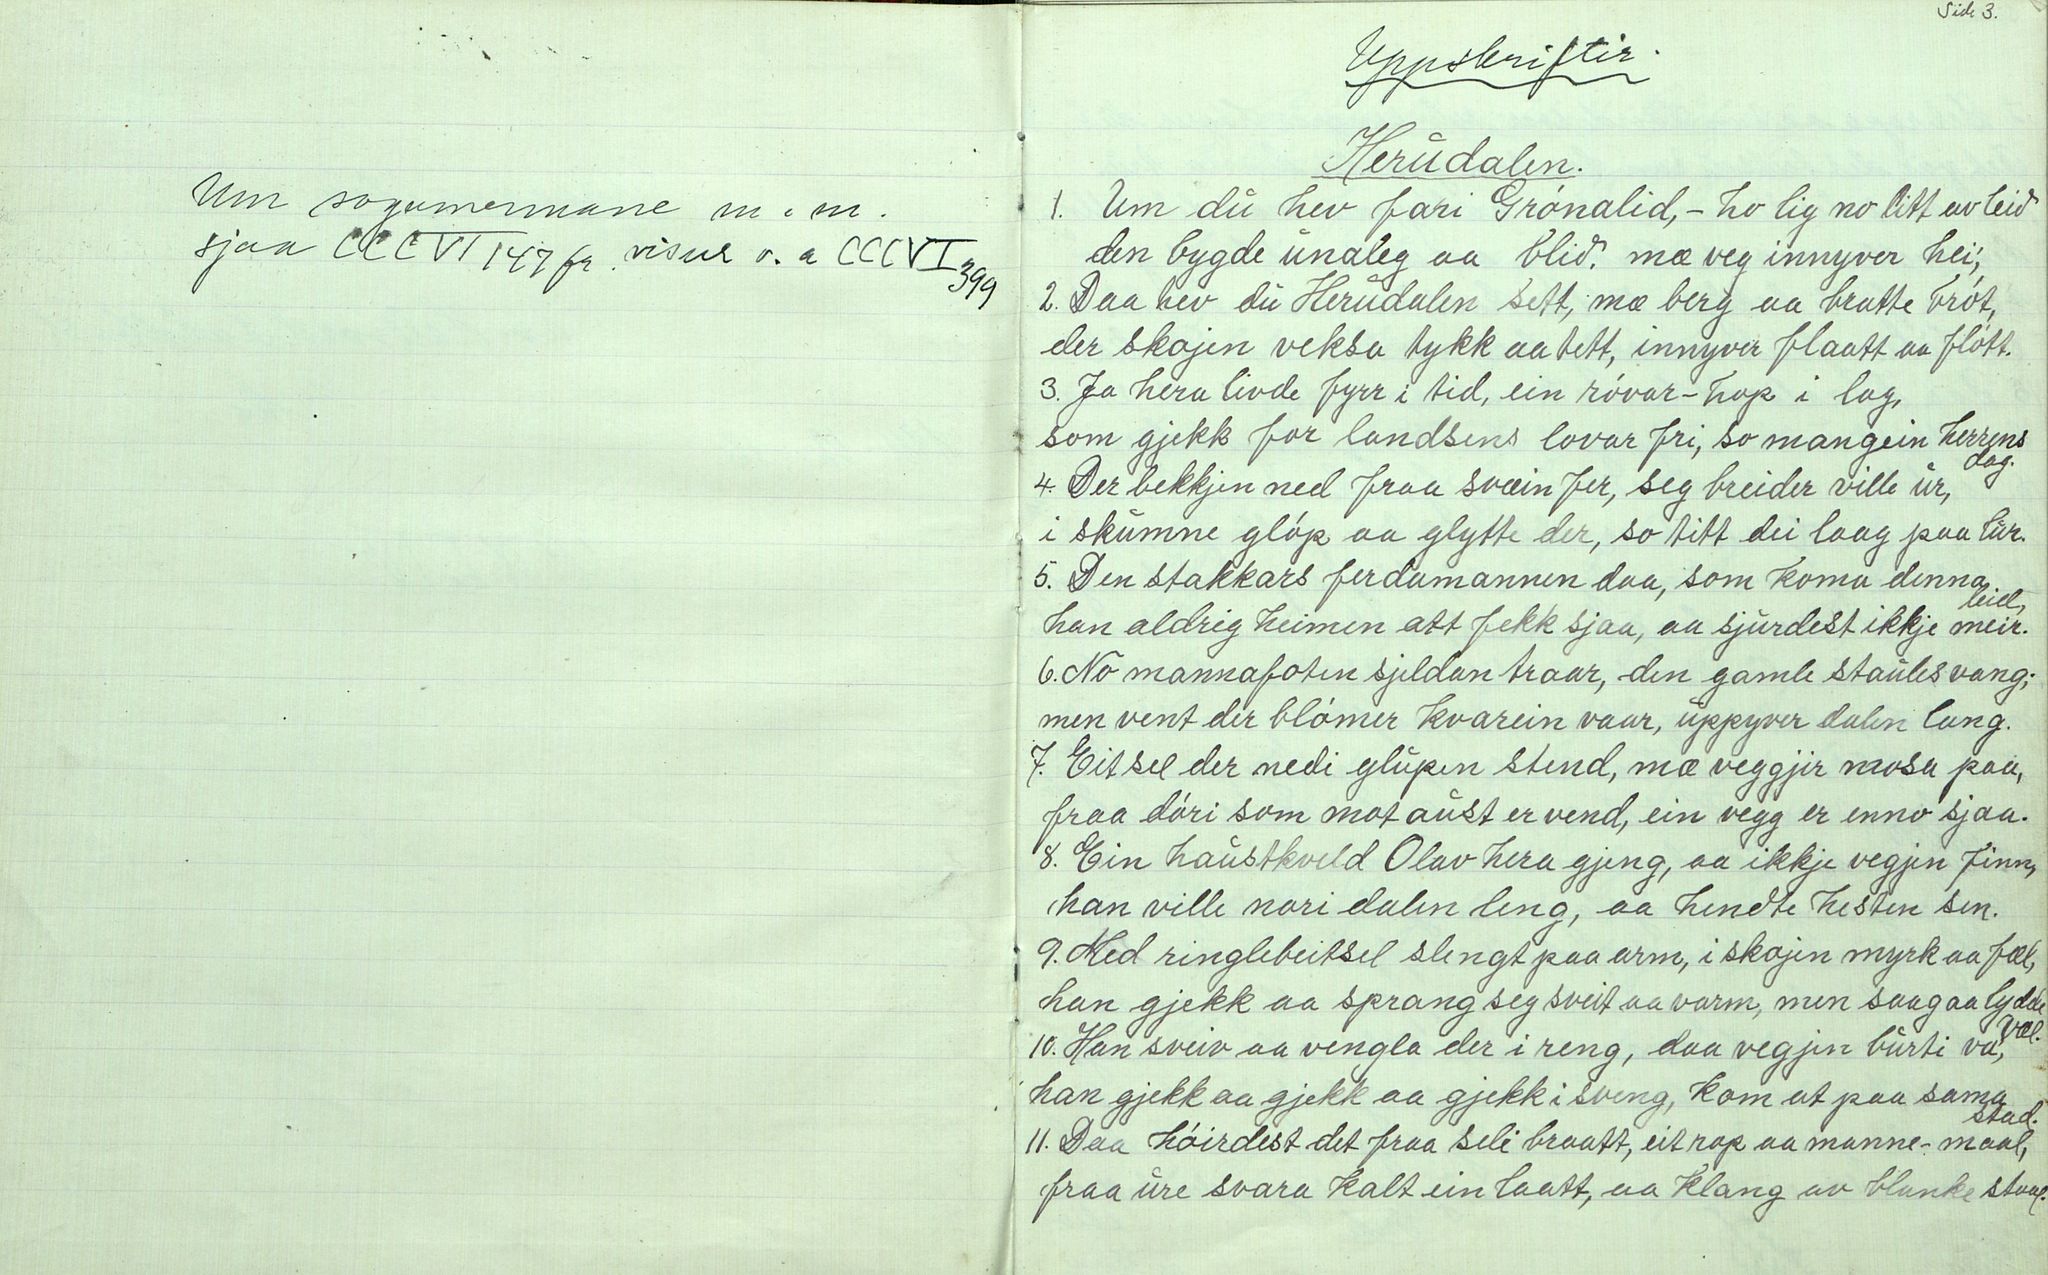 Um sogumennane m.m.
sjaa CCCVI 147 fr. visur o.a CCCVI 399
Side 3.
Uppskriftir.
Herudalen.
1. Um du hev fari Grónalid, - ho lig no litt av leid
den bygde unaleg aa blid. mæ veg innyver hei;
2. Daa hev du Herudalen sett, mæ berg aa bratte brót,
der skojen veksa tykk aa tett, innyver flaatt aa flótt.
3. Ja hera livde fyrr i tid, ein róvar-hop i lag,
som gjekk for landsens lovar fri, so mangein herrens dag.
4. Der bekkjen ned fraa svæin fer, seg breider ville ur,
i skumne glóp aa glytte der, so titt dei laag paa lur.
5. Den stakkars ferdamannen daa, som koma denna leid,
han aldrig heimen att fekk sjaa, aa sjurdest ikkje meir.
6. No mannafoten sjeldan traar, den gamle staulesvang;
men vent der blómer kvarein vaar, uppyver dalen lang.
7. Eit sel der nedi glupen stend, mæ veggjir mosa paa,
fraa dóri som mot aust er vend, ein vegg er enno sjaa.
8. Ein haustkveld Olav hera gjeng, aa ikkje vegjen finn,
han ville nori dalen leng, aa hendte hesten sin.
9. Med ringlebeitsel slengt paa arm, i skojen myrk aa fæl,
han gjekk aa sprang seg sveit aa varm, men saag aa lydde væl.
10. Han sveiv aa vengla der i reng, daa vegjen burti va,
han gjekk aa gjekk aa gjekk i sveng, kom at paa sama stad.
11. Daa hóirdest det fraa seli braatt, eit rop aa manne-maal,
fraa ure svara kalt ein laatt, aa klang av blanke staal.